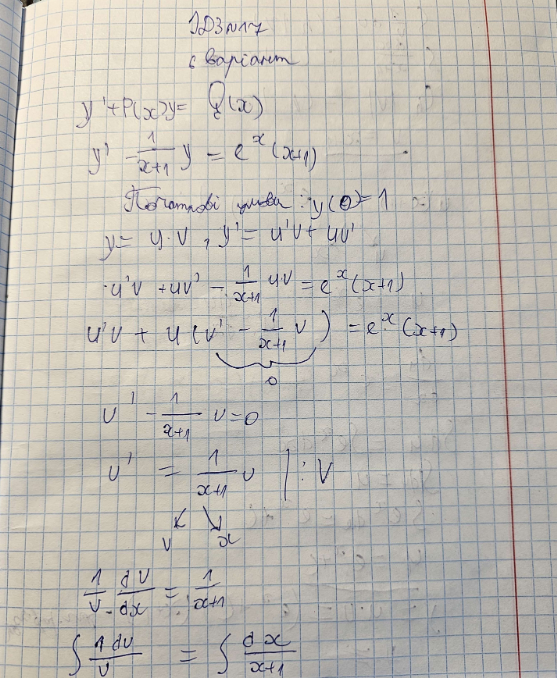 ІДЗ №17
6 варіант
y' + P(x)y = Q(x)
y' - 1/(x+1) y = e^x (x+1)
Початкові умови : y(0) = 1
y = u · v , y' = u'v + uv'
u'v + uv' - 1/(x+1) uv = e^x (x+1)
u'v + u(v' - 1/(x+1) v) = e^x (x+1)
0
v' - 1/(x+1) v = 0
v' = 1/(x+1) v | : v
v x
1/v dv/dx = 1/(x+1)
∫ 1dv/v = ∫ dx/(x+1)